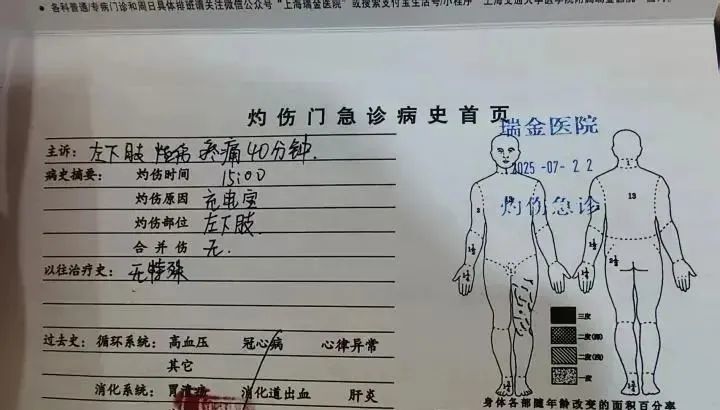 各科普通/专病门诊和周日具体排班请关注微信公众号“上海瑞金医院”或搜索支付宝生活号/小程序“上海交通大学医学院附属瑞金医院”
灼伤门急诊病史首页
瑞金医院
2025-07-22
灼伤急诊
主诉：左下肢 疼痛40分钟.
病史摘要：灼伤时间 15:00
灼伤原因 充电宝
灼伤部位 左下肢.
合并伤 无.
以往治疗史：无特殊
过去史：循环系统：高血压 冠心病 心律异常
其它
消化系统：胃溃疡 消化道出血 肝炎
13
三度
二度(深)
二度(浅)
一度
身体各部随年龄改变的面积百分率